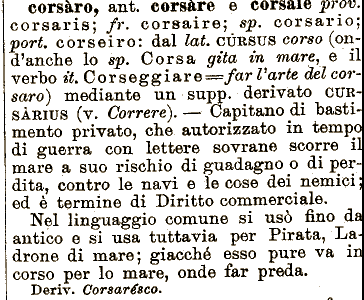 corsàro, ant. corsàre e corsale prov.
corsaris; fr. corsaire; sp. corsario;
port. corseiro: dal lat. CÚRSUS corso (on-
d'anche lo sp. Corsa gita in mare, e il
verbo it. Corseggiare=far l'arte del cor-
saro) mediante un supp. derivato CUR-
SÀRIUS (v. Correre). — Capitano di basti-
mento privato, che autorizzato in tempo
di guerra con lettere sovrane scorre il
mare a suo rischio di guadagno o di per-
dita, contro le navi e le cose dei nemici;
ed è termine di Diritto commerciale.
Nel linguaggio comune si usò fino da
antico e si usa tuttavia per Pirata, La-
drone di mare; giacché esso pure va in
corso per lo mare, onde far preda.
Deriv. Corsarésco.